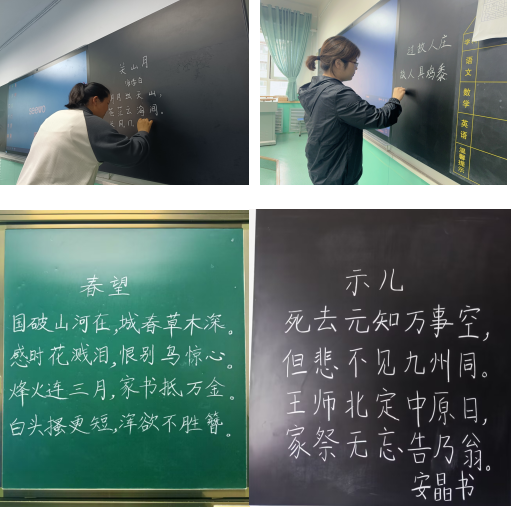 关山月
李白
明月出天山,
云海间。
长风几
过故人庄
故人具鸡黍
语文
数学
英语
温馨提示
春望
国破山河在,城春草木深。
感时花溅泪,恨别鸟惊心。
烽火连三月,家书抵万金。
白头搔更短,浑欲不胜簪。
示儿
死去元知万事空,
但悲不见九州同。
王师北定中原日,
家祭无忘告乃翁。
安晶书